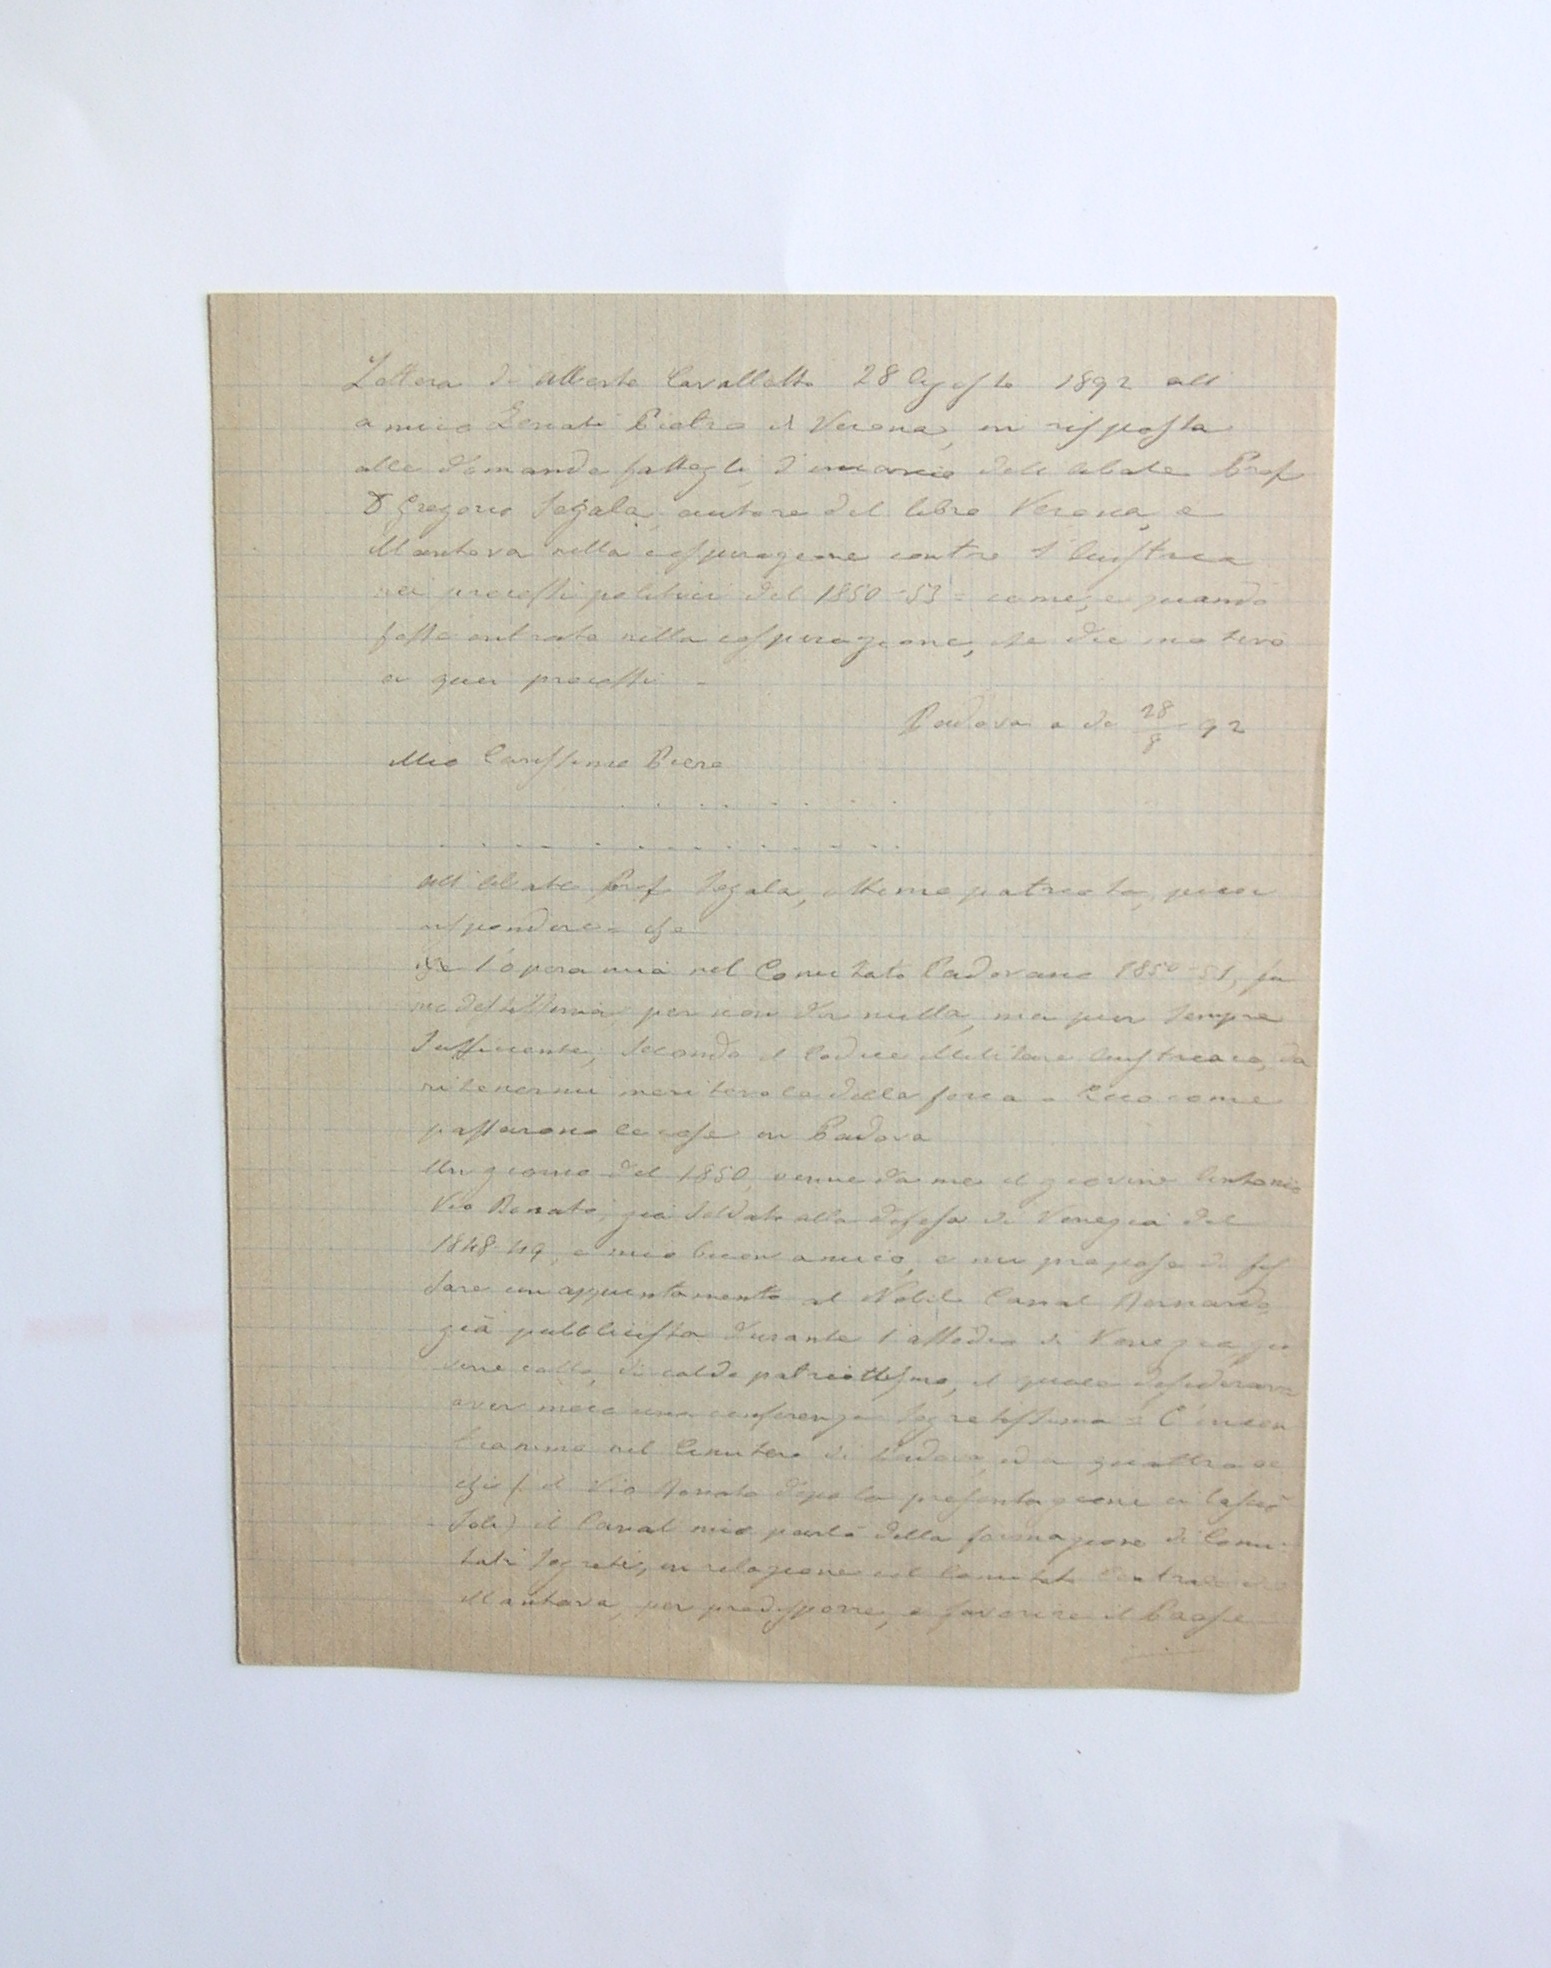 Lettera di Alberto Cavalletto 28 Agosto 1892 all
amico Zenati Pietro di Verona, in risposta
alle domande fattegli, d'incarico dell'Abate Prof
Dr Gregorio Segala, autore del libro Verona, e
Mantova nella cospirazione contro l'Austria
nei processi politici del 1850-53 = come, e quando
fosse entrato nella cospirazione, che die motivo
a quei processi -
Padova a dì 28/8 92
Mio Carissimo Piero
. . . . . . . .
. . . . . . . . . . . .
All'Abate Prof Segala, ottimo patriota, puoi
rispondere = che
che l'opera mia nel Comitato Padovano 1850-51, fu
modestissima per non dir nulla, ma pur sempre
sufficiente, secondo il Codice Militare Austriaco, da
ritenermi meritevole della forca - Ecco come
passarono le cose in Padova
Un giorno del 1850, venne da me il giovine Antonio
Vio Bonato, già soldato alla difesa di Venezia del
1848-49, e mio buon amico, e mi propose di fis
sare un appuntamento al Nobile Canal Bernardo
già pubblicista durante l'assedio di Venezia gio
vine colto, di caldo patriottismo, il quale desiderava
aver meco una conferenza segretissima = C'incon
trammo nel Cimitero di Padova, ed a quattro oc
chi (il Vio Bonato dopo la presentazione ci lasciò
soli) il Canal mio parlò della formazione di Comi-
tati segreti, in relazione col Comitato Centrale di
Mantova, per predisporre, e favorire il Paese